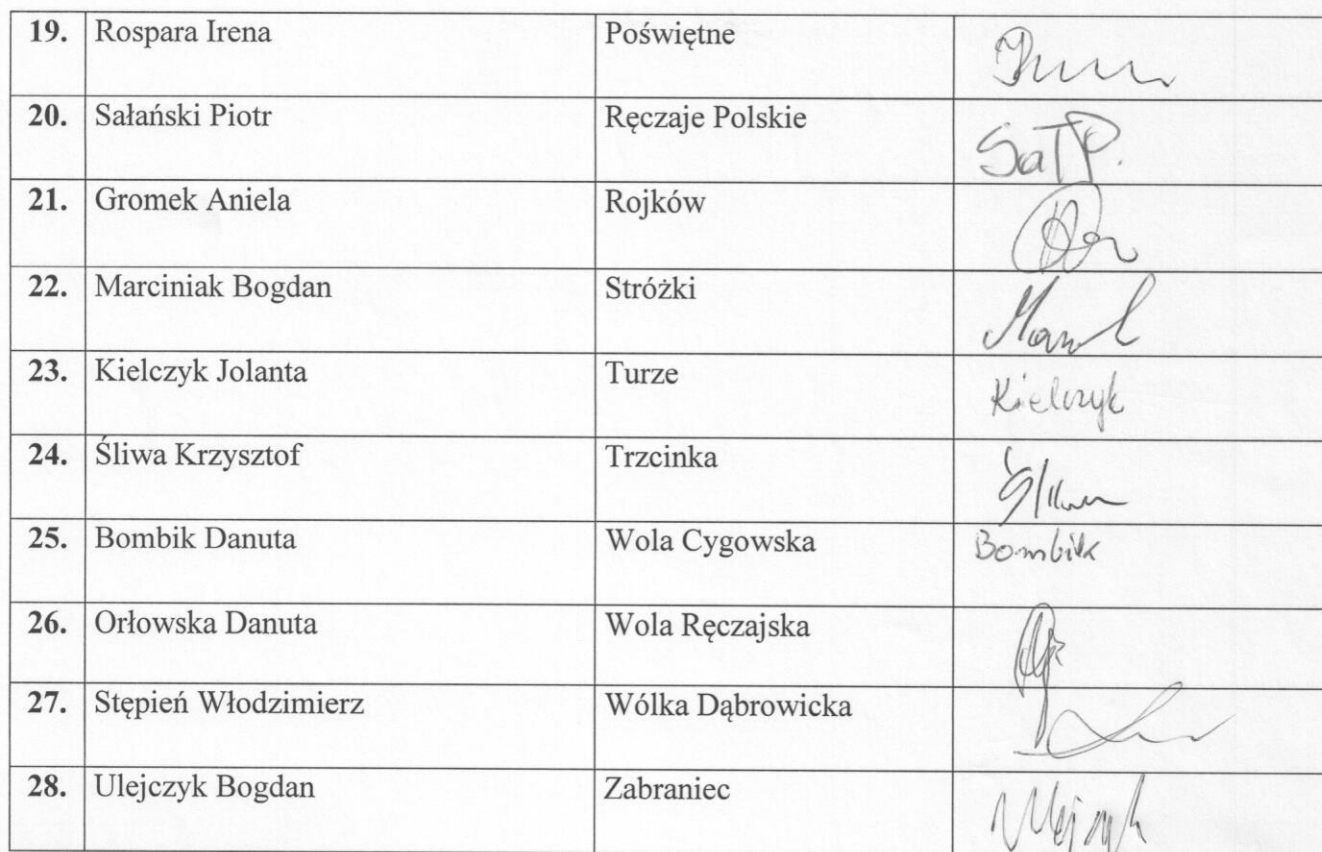 19. Rospara Irena Poświętne
20. Sałański Piotr Ręczaje Polskie Sał P.
21. Gromek Aniela Rojków
22. Marciniak Bogdan Stróżki
23. Kielczyk Jolanta Turze Kielczyk
24. Śliwa Krzysztof Trzcinka Śliwa
25. Bombik Danuta Wola Cygowska Bombik
26. Orłowska Danuta Wola Ręczajska
27. Stępień Włodzimierz Wólka Dąbrowicka
28. Ulejczyk Bogdan Zabraniec Ulejczyk